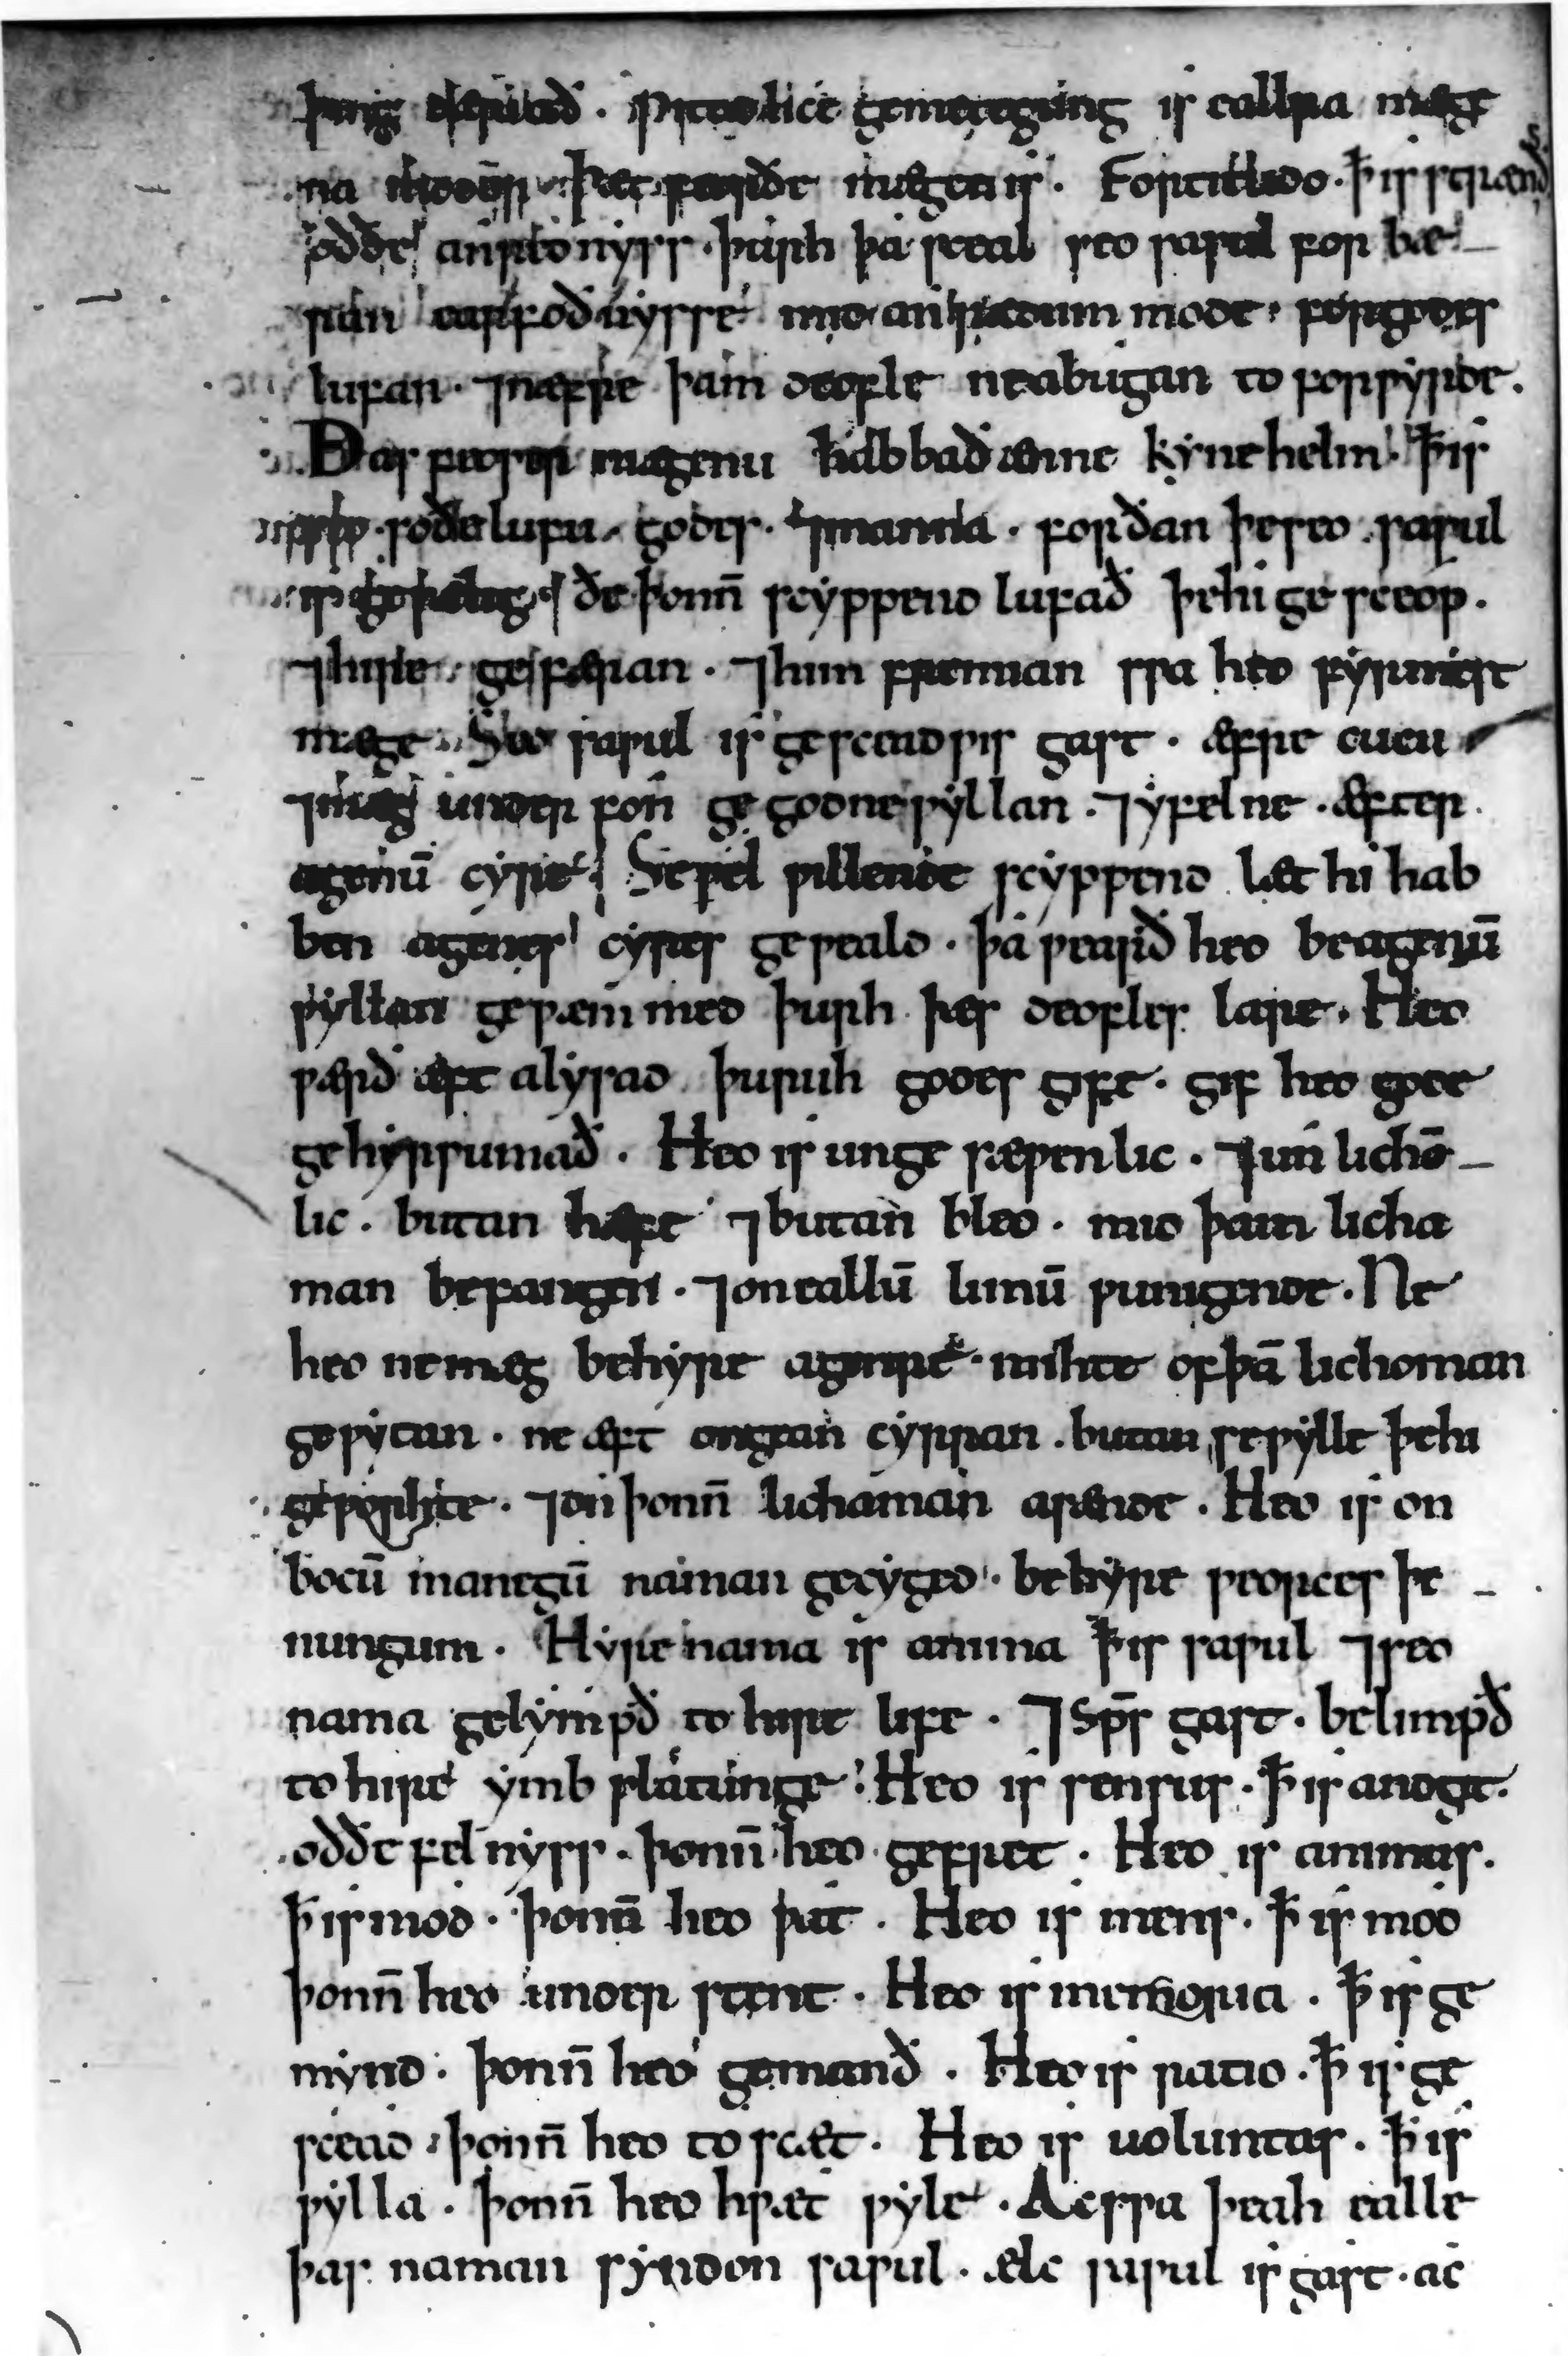 þing derað. Witodlice gemetegung is eallra mæge
na modor. Þæt feorðe mægen is. Fortitudo. ꝥ is strænð
oððe anrædnyss. þurh þa sceal seo sawul forbæ-
ran earfoðnysse mid anrædum mode. for godes
lufan. ⁊næfre þam deofle ne abugan to forwyrde.
Ðas feower mægenu habbað ænne kynehelm. ꝥ is
soðe lufu. godes. ⁊manna. forðan þe seo sawul
is gesælig ðe þonn̄ scyppend lufað þe hi gesceop.
⁊hire geferan. ⁊him fremian swa heo fyrmest
mæge. Seo sawul is gesceadwis gast. æfre cucu
⁊mæg underfon ge godne wyllan. ⁊yfelne. æfter
agenū cyre. Se wel willende scyppend læt hi hab
ben agenes cyres geweald. þa wearð heo be agenū
wyllan gewæmmed þurh þæs deofles lare. Heo
wærð æft alysad þuruh godes gife. gif heo gode
gehyrsumað. Heo is ungesæwenlic. ⁊un lichō-
lic. butan hæfe ⁊butan bleo. mid þam licha
man befangen. ⁊on eallū limū wunigende. Ne
heo ne mæg behyre agenre mihte of þā lichoman
gewytan. ne æft ongean cyrran. butan se wylle þe hi
geworhte. ⁊on þonn̄ lichaman asænde. Heo is on
bocū manegū naman gecyged. be hyre weorces þe-
nungum. Hyre nama is anima ꝥ is sawul ⁊seo
nama gelympð to hire life. ⁊ sp̄s gast. belimpð
to hire ymb wlatunge. Heo is sensus. ꝥ is andgit.
oððe felnyss. þonn̄ heo gefret. Heo is animus.
ꝥ is mod. þonn̄ heo wat. Heo is mens. ꝥ is mod
þonn̄ heo under stent. Heo is memoria. ꝥ is ge
mynd. þonn̄ heo gemanð. Heo is ratio. ꝥ is ge
scead. þonn̄ heo toscæt. Heo is uoluntas. ꝥ is
wylla. þonn̄ heo hwæt wyle. Ac swa þeah ealle
þas naman syndon sawul. ælc sawul is gast. ac